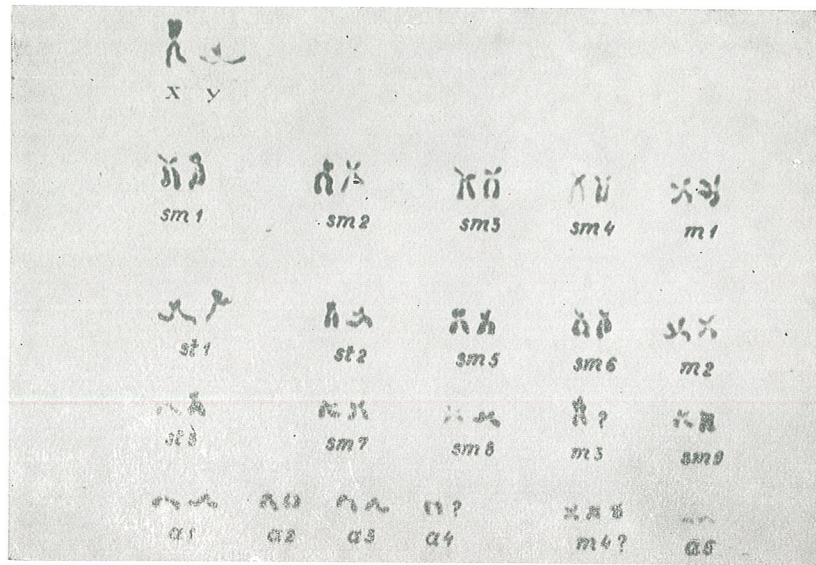 x y
sm 1 sm 2 sm 3 sm 4 m 1
st 1 st 2 sm 5 sm 6 m 2
st 3 sm 7 sm 8 ? m 3 sm 9
? 
a 1 a 2 a 3 a 4 m 4? a 5